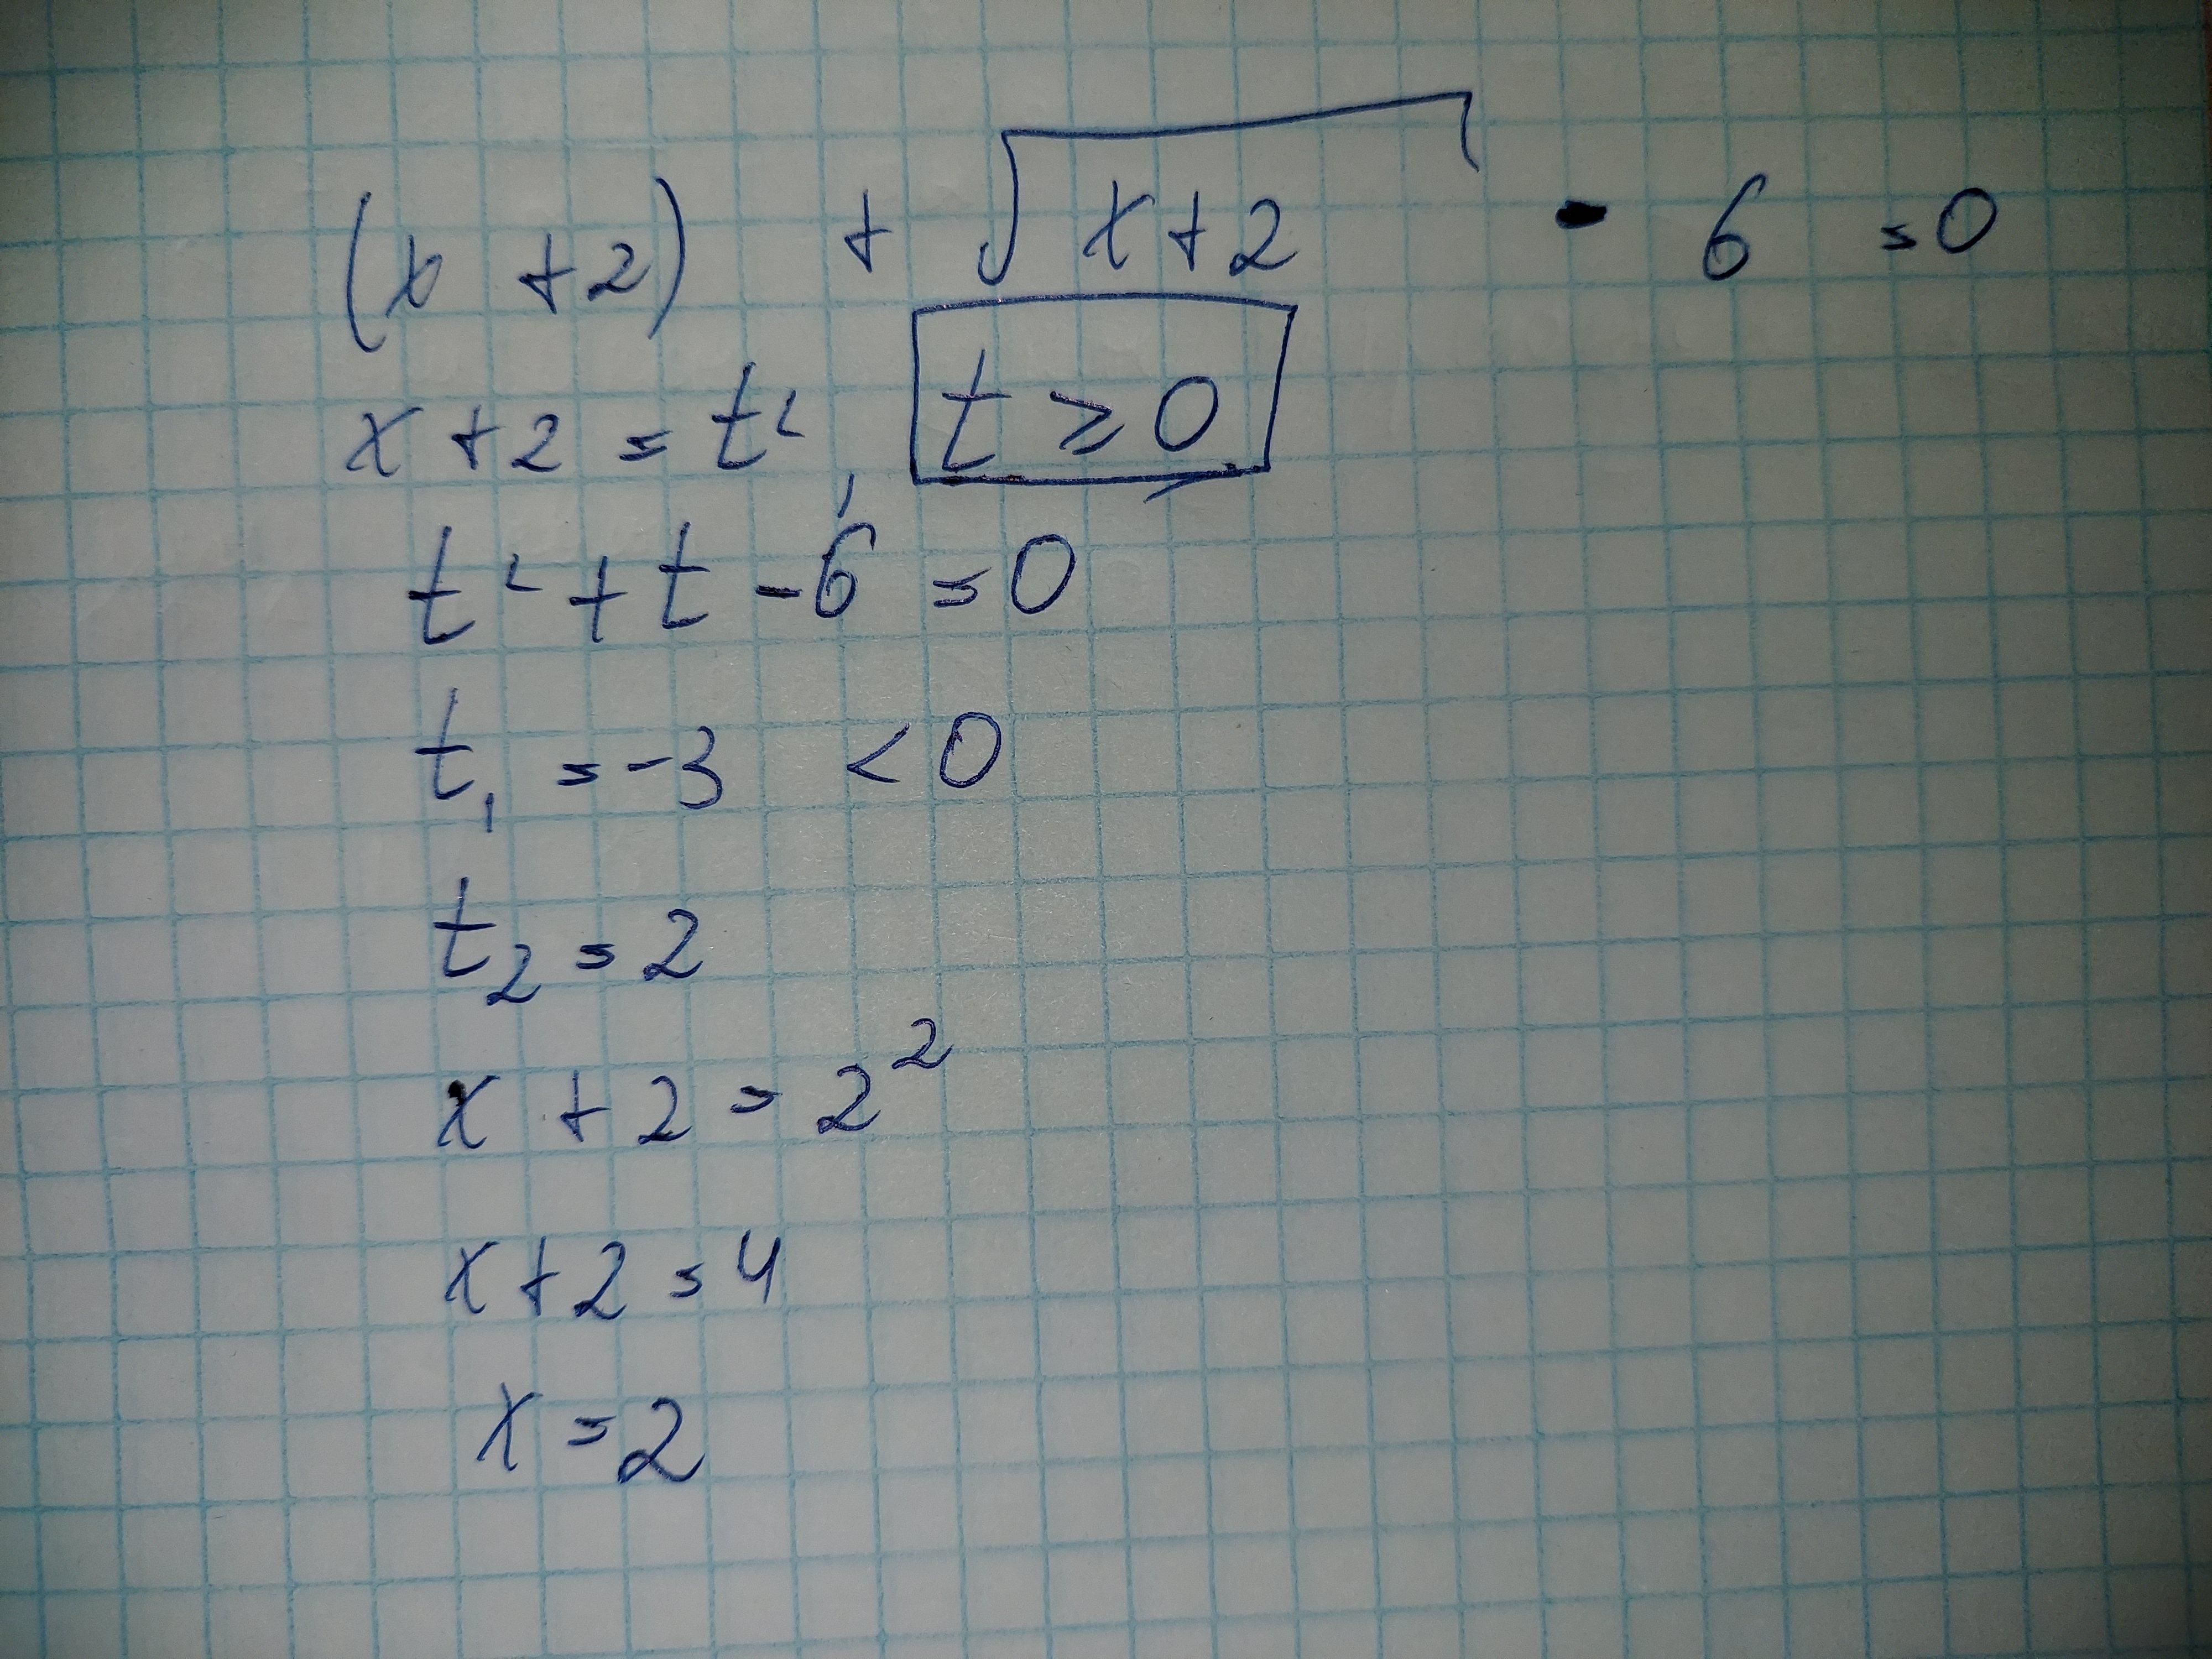 (x + 2) + √(x+2) - 6 = 0
x + 2 = t², t ≥ 0
t² + t - 6 = 0
t₁ = -3 < 0
t₂ = 2
x + 2 = 2²
x + 2 = 4
x = 2